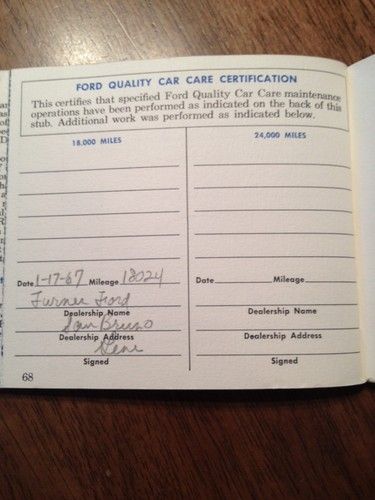 FORD QUALITY CAR CARE CERTIFICATION
This certifies that specified Ford Quality Car Care maintenance
operations have been performed as indicated on the back of this
stub. Additional work was performed as indicated below.
18,000 MILES
Date 1-17-67 Mileage 18024
Turner Ford
Dealership Name
San Bruno
Dealership Address
Gene
Signed
24,000 MILES
Date Mileage
Dealership Name
Dealership Address
Signed
68